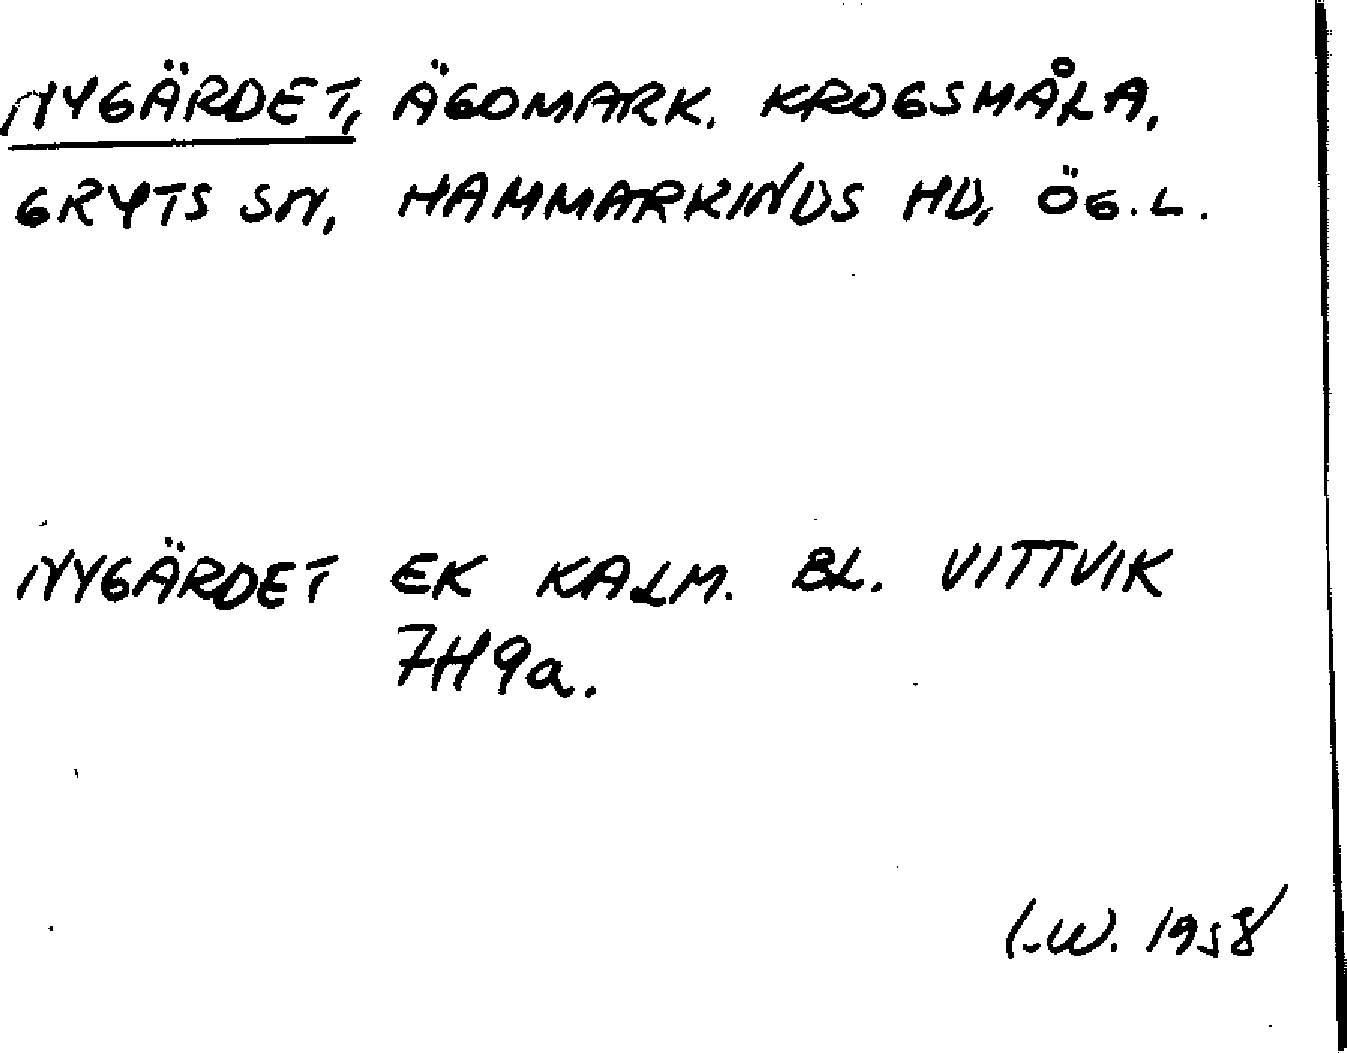 NYGÄRDET, ÄGOMARK. KROGSMÅLA,
GRYTS SN, HAMMARKINDS HD, ÖG.L.
NYGÄRDET EK KALM. BL. VITTVIK
7H9a.
I.W. 1958